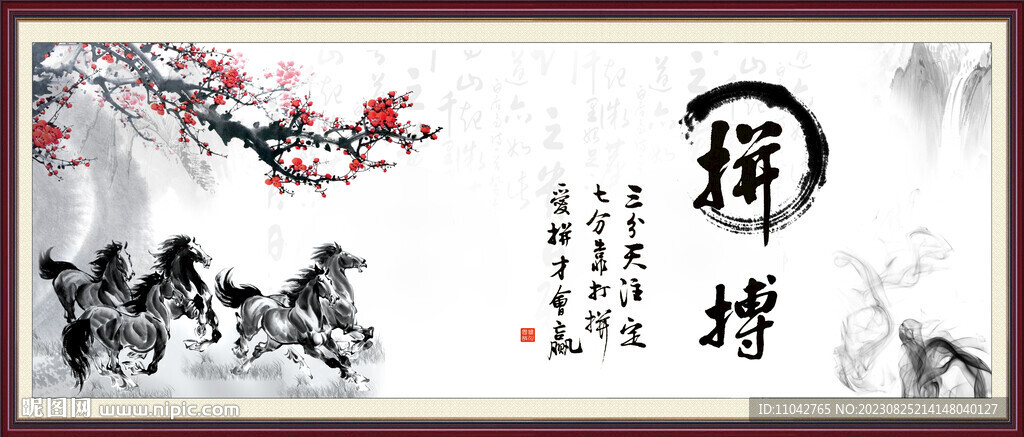 拼搏
三分天注定
七分靠打拼
爱拼才會赢
昵图网 www.nipic.com
ID:11042765 NO:20230825214148040127